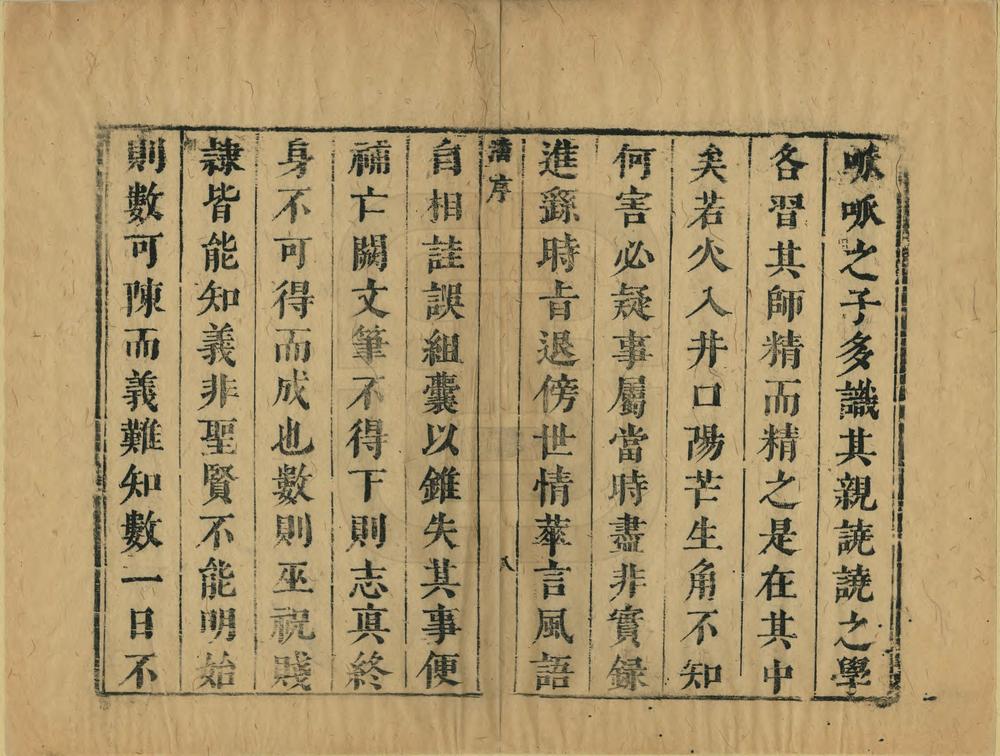 哌哌之子多識其親譊譊之學
各習其師精而精之是在其中
矣若火入井口陽芒生角不知
何害必疑事屬當時盡非實録
進繇時旹退傍世情萃言風語
序
八
自相詿誤組囊以錐失其事便
補亡闕文筆不得下則志真終
身不可得而成也數則巫祝賤
隷皆能知義非聖賢不能明始
則數可陳而義難知數一日不